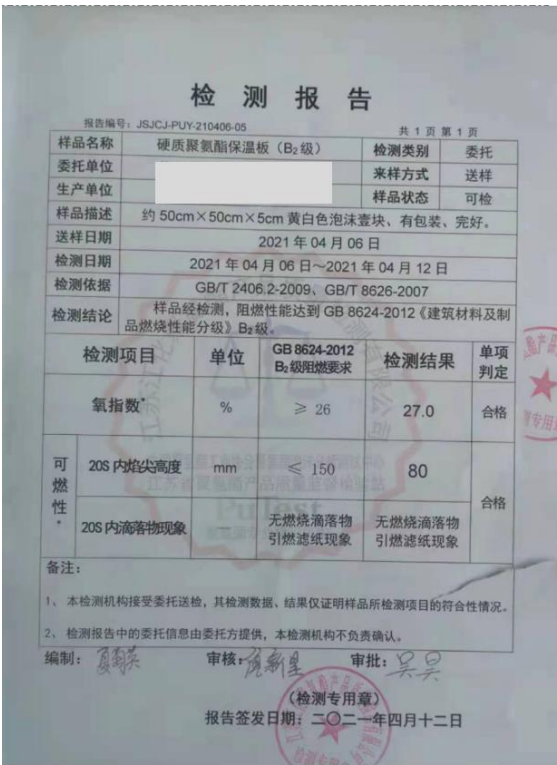 检 测 报 告
报告编号：JSJCJ-PUY-210406-05
共 1 页 第 1 页
样品名称 硬质聚氨酯保温板（B₂级） 检测类别 委托
委托单位 来样方式 送样
生产单位 样品状态 可检
样品描述 约 50cm×50cm×5cm 黄白色泡沫壹块、有包装、完好。
送样日期 2021 年 04 月 06 日
检测日期 2021 年 04 月 06 日～2021 年 04 月 12 日
检测依据 GB/T 2406.2-2009、GB/T 8626-2007
检测结论 样品经检测，阻燃性能达到 GB 8624-2012《建筑材料及制
品燃烧性能分级》B₂级。
检测项目 单位 GB 8624-2012
B₂级阻燃要求 检测结果 单项
判定
氧指数* % ≥ 26 27.0 合格
可燃性* 20S 内焰尖高度 mm ≤ 150 80 合格
20S 内滴落物现象 — 无燃烧滴落物
引燃滤纸现象 无燃烧滴落物
引燃滤纸现象
备注：
1、本检测机构接受委托送检，其检测数据、结果仅证明样品所检测项目的符合性情况。
2、检测报告中的委托信息由委托方提供，本检测机构不负责确认。
编制： 审核： 审批：吴昊
（检测专用章）
报告签发日期：二〇二一年四月十二日